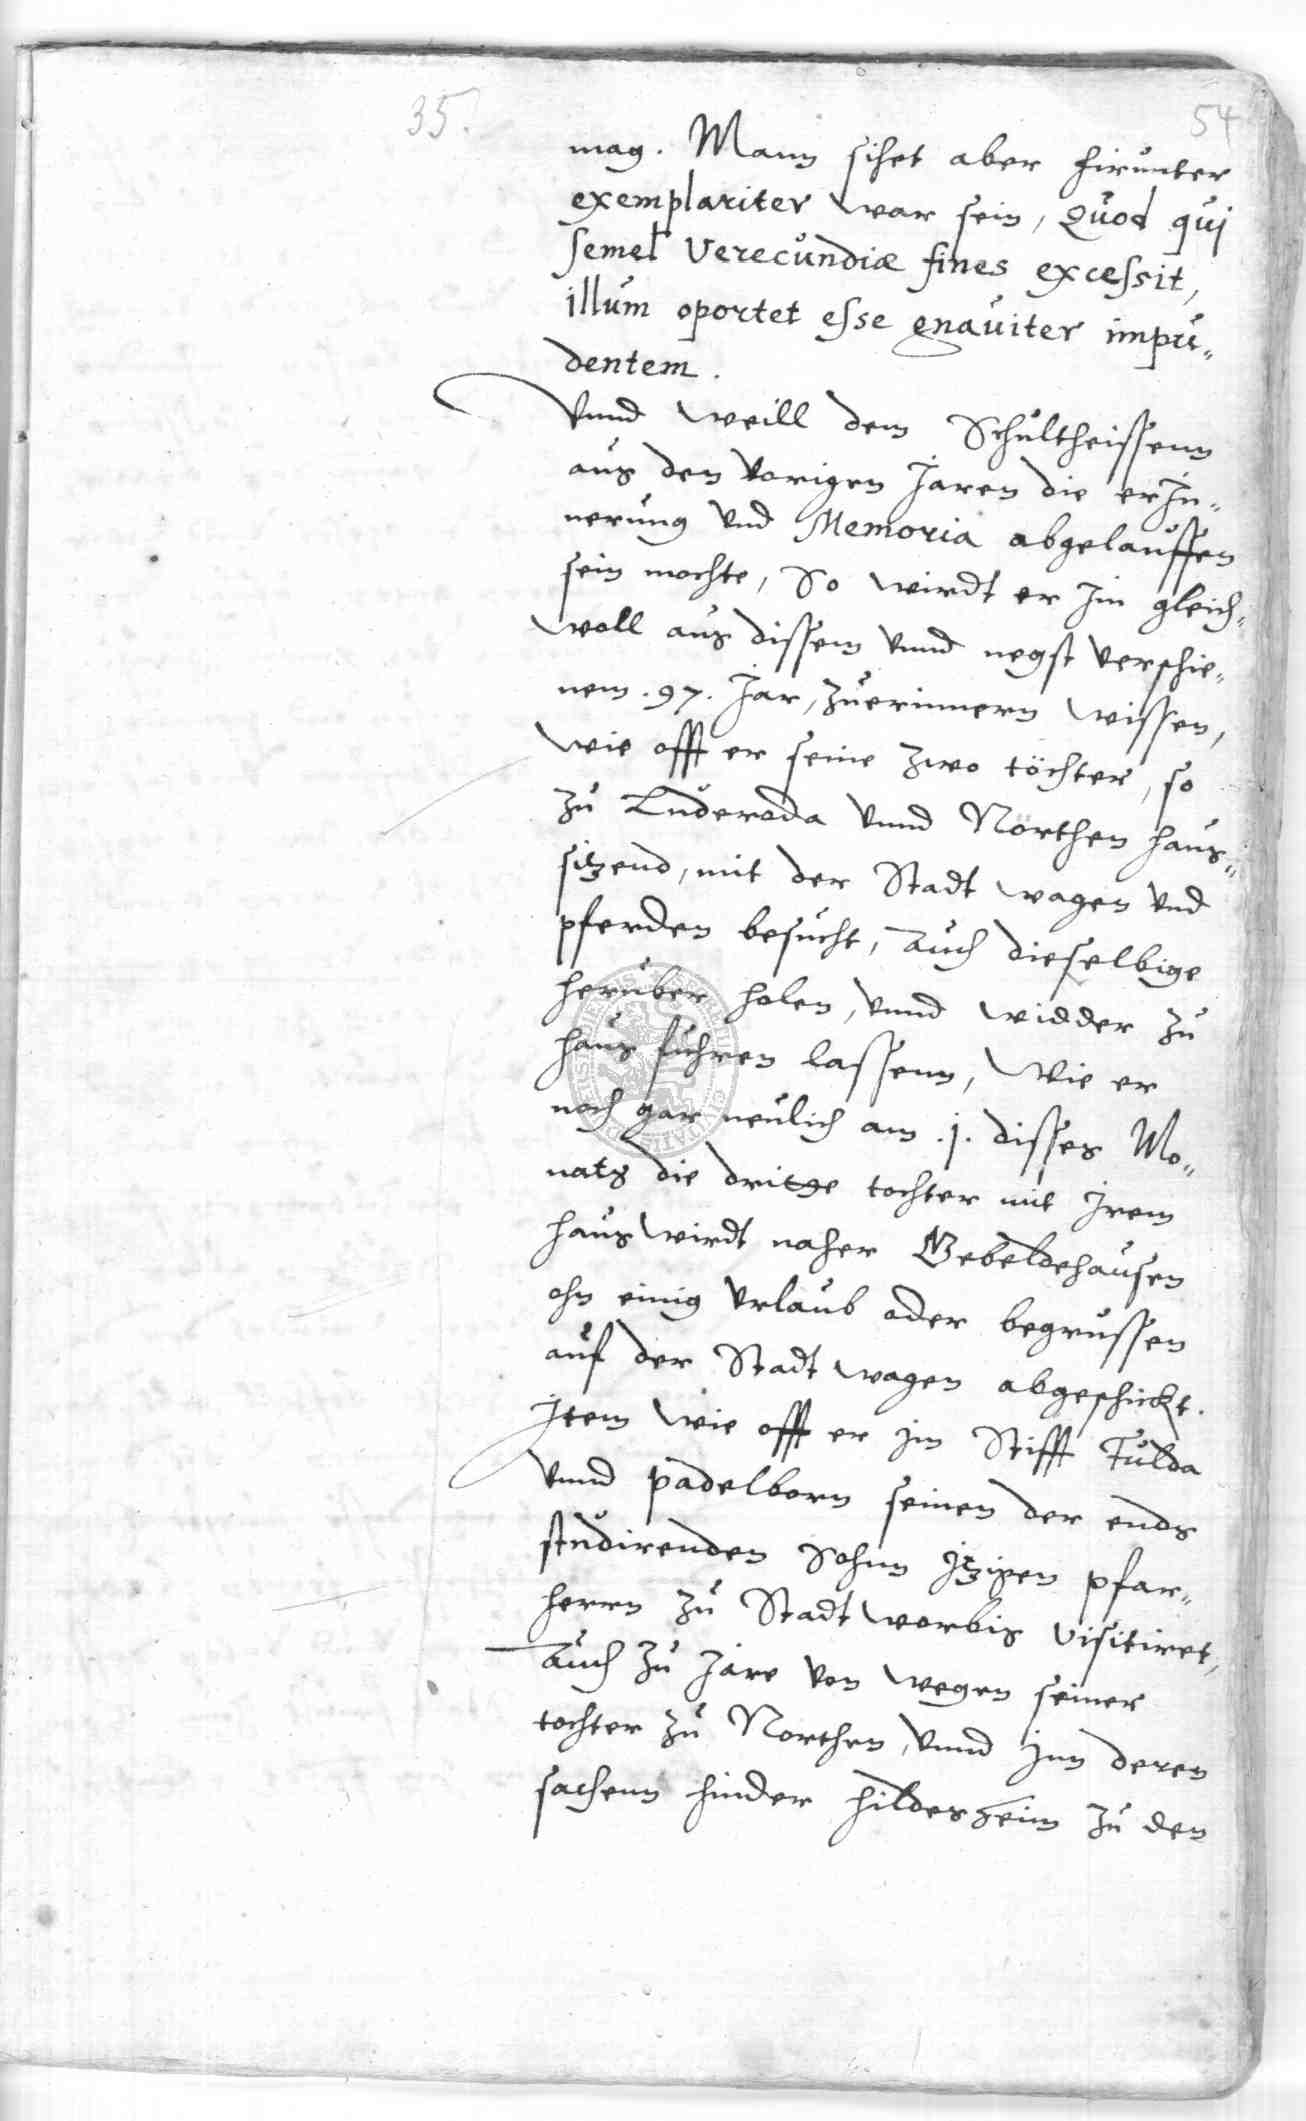 35.
54
mag. Mann sihet aber hirunter
exemplariter war sein, Quod qui
semel Verecundiæ fines excessit,
illum oportet esse gnauiter impu„
dentem.
Vnnd weill dem Schultheissenn
aus den vorigen Jaren die erJn„
nerung vnd Memoria abgelauffen
sein mochte, So wirdt er Jm gleich„
woll aus dissem vnnd negst verschie„
nem .97. Jar, zuerinnern wissen,
wie offt er seine zwo töchter, so
zu Luderoda vnnd Nörthen haus„
sitzend, mit der Stadt wagen vnd
pferden besucht, Auch dieselbige
herüber holen, vnnd widder zu
haus fuhren lassenn, Wie er
noch gar neulich am .j. disses Mo„
nats die dritte tochter mit Jrem
hauswirdt naher Gebeldehausen
ohn einig vrlaub oder begrussen
auf der Stadt wagen abgeschickt.
Jtem wie offt er jm Stifft Fulda
vnnd padelborn seinen der ends
studirenden Sohnn Jtzigen pfar„
herrn zu Stadt worbis visitiret,
Auch zu Jare von wegen seiner
tochter zu Northen, vnnd Jnn deren
sachenn hinder Hildesheim zu den